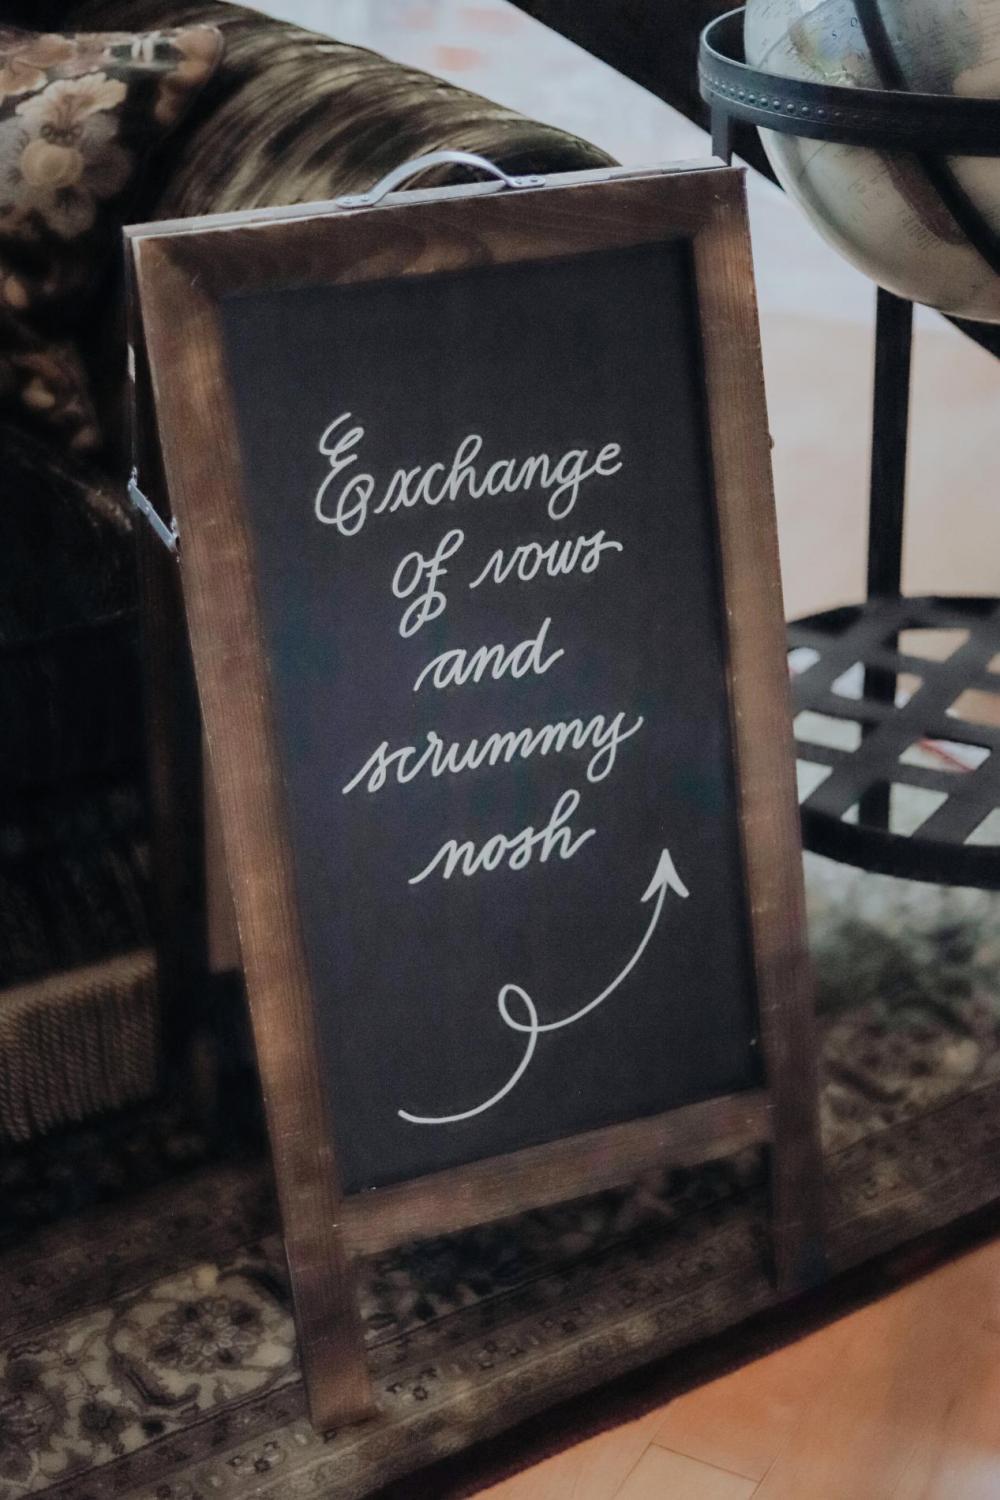 Exchange
of vows
and
scrummy
nosh